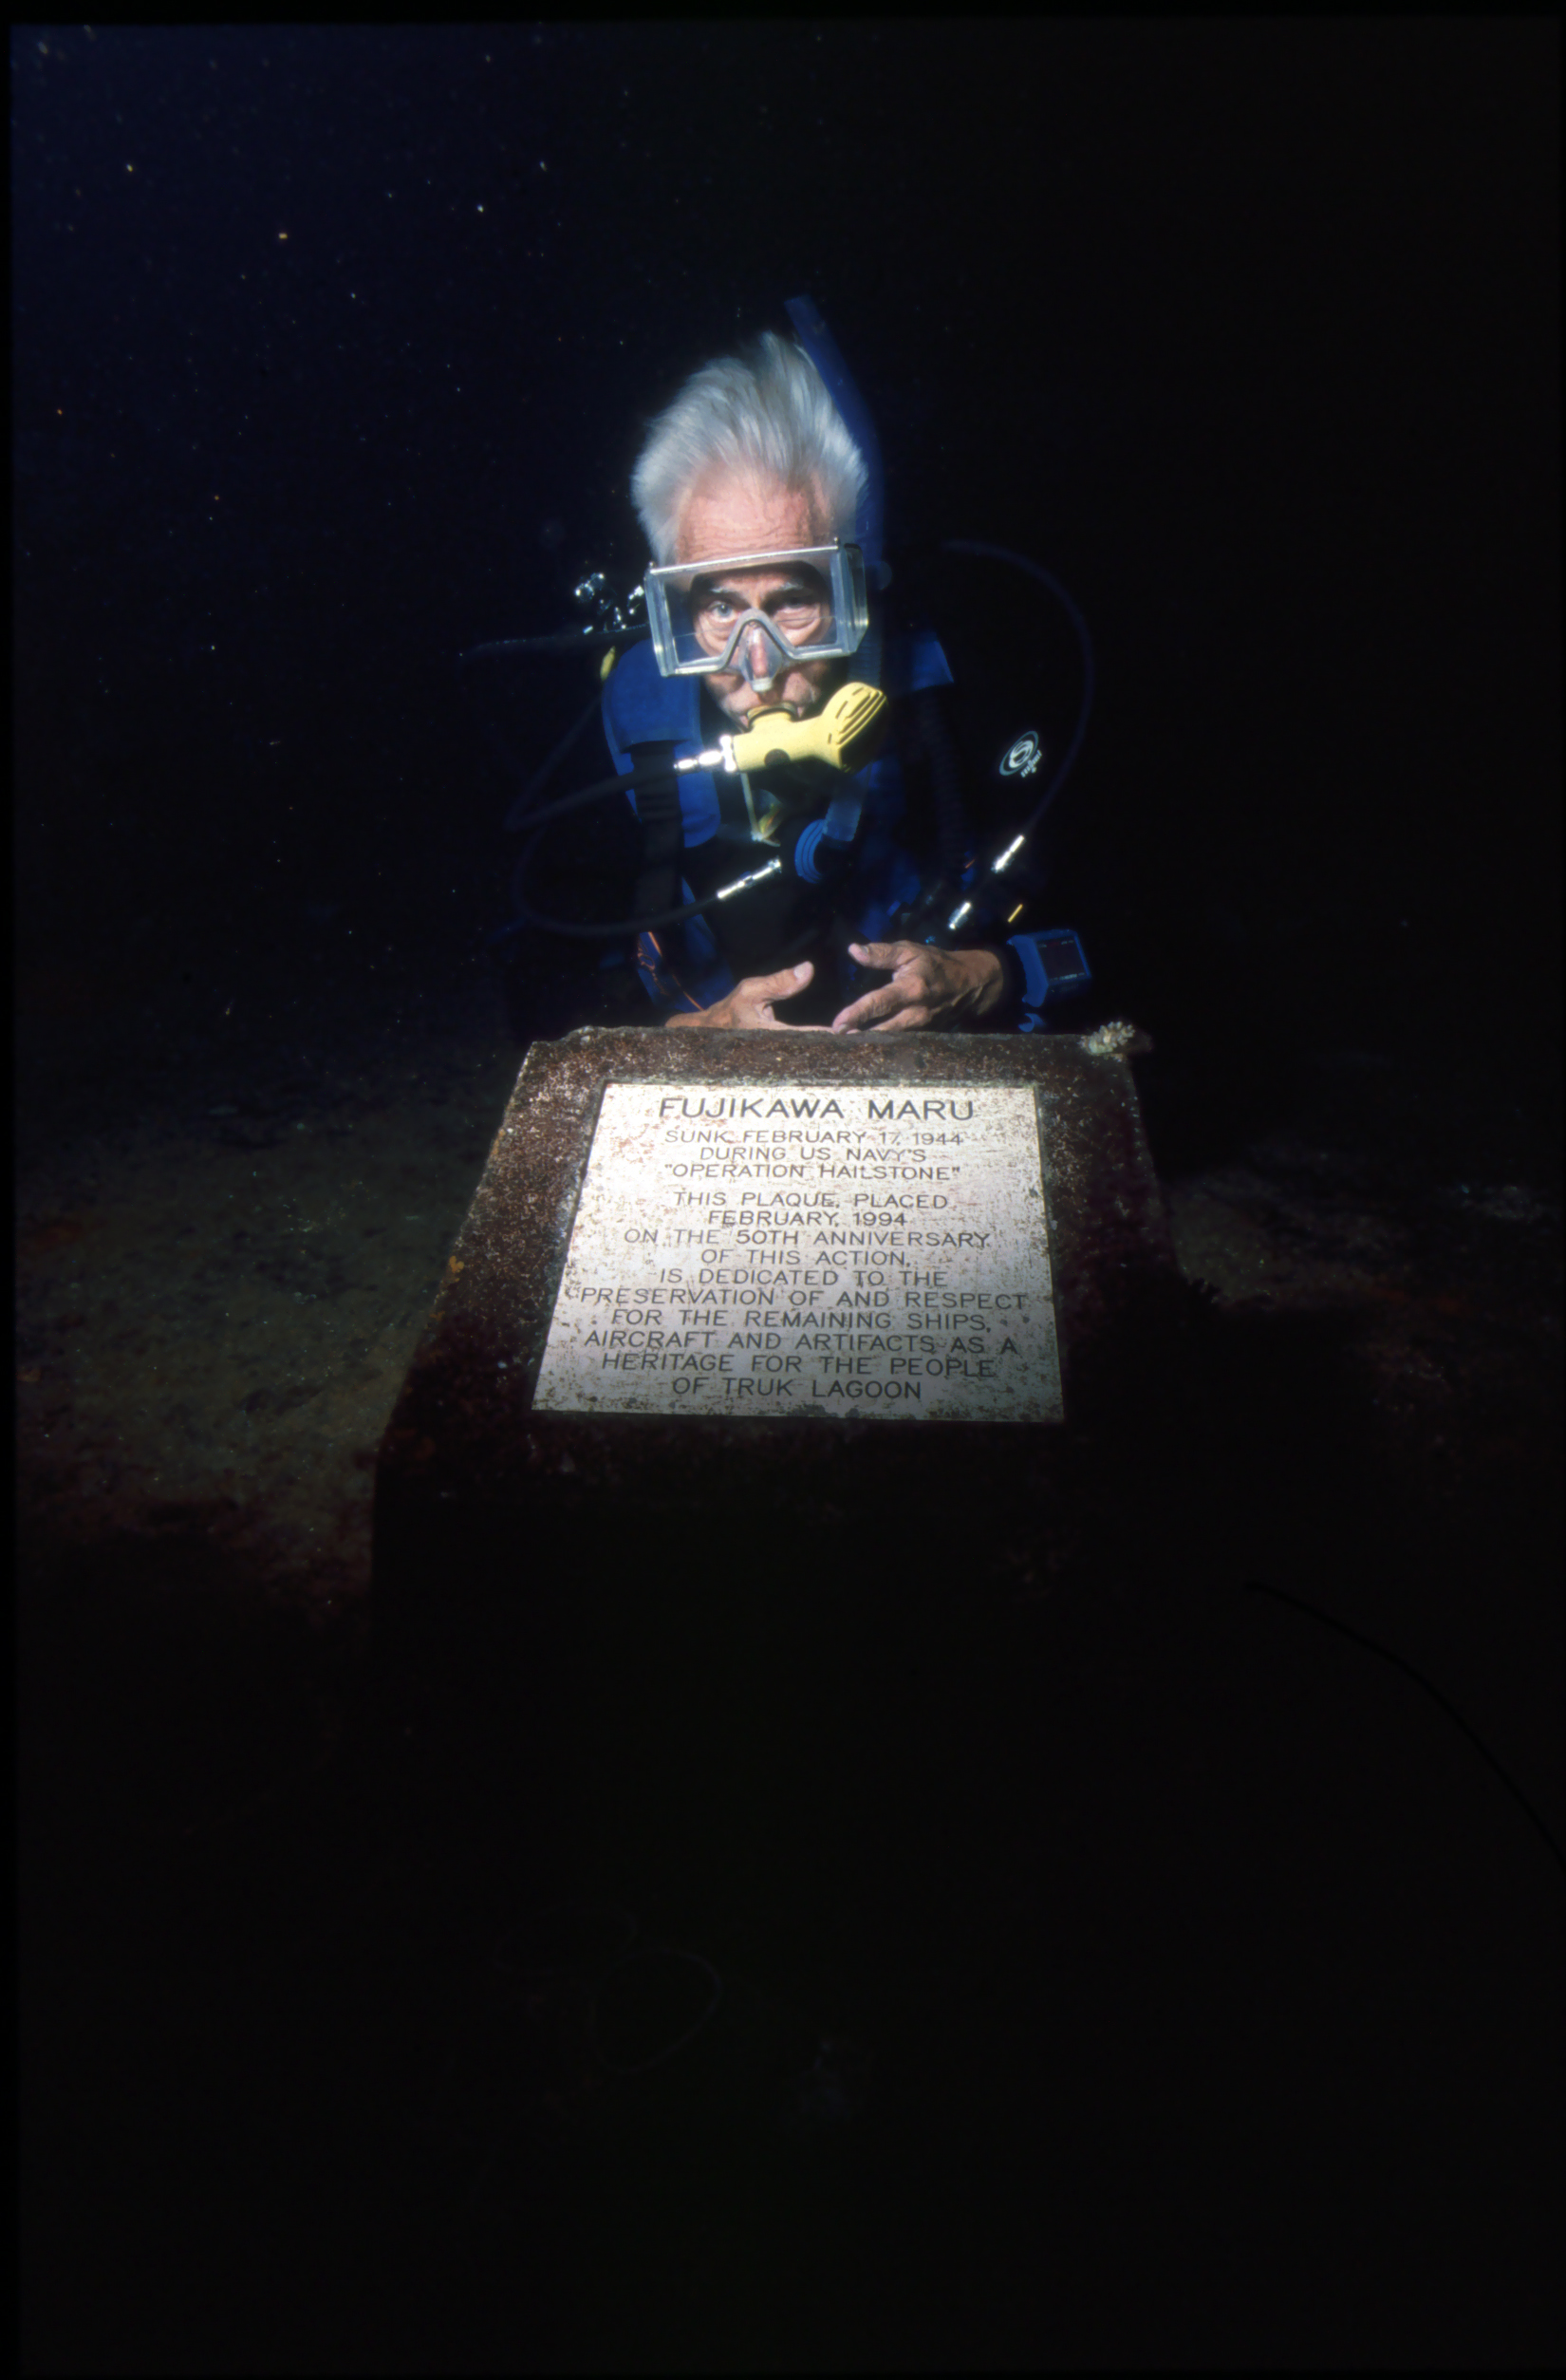 FUJIKAWA MARU
SUNK FEBRUARY 17, 1944
DURING US NAVY'S
"OPERATION HAILSTONE"
THIS PLAQUE, PLACED
FEBRUARY, 1994
ON THE 50TH ANNIVERSARY
OF THIS ACTION,
IS DEDICATED TO THE
PRESERVATION OF AND RESPECT
FOR THE REMAINING SHIPS,
AIRCRAFT AND ARTIFACTS AS A
HERITAGE FOR THE PEOPLE
OF TRUK LAGOON